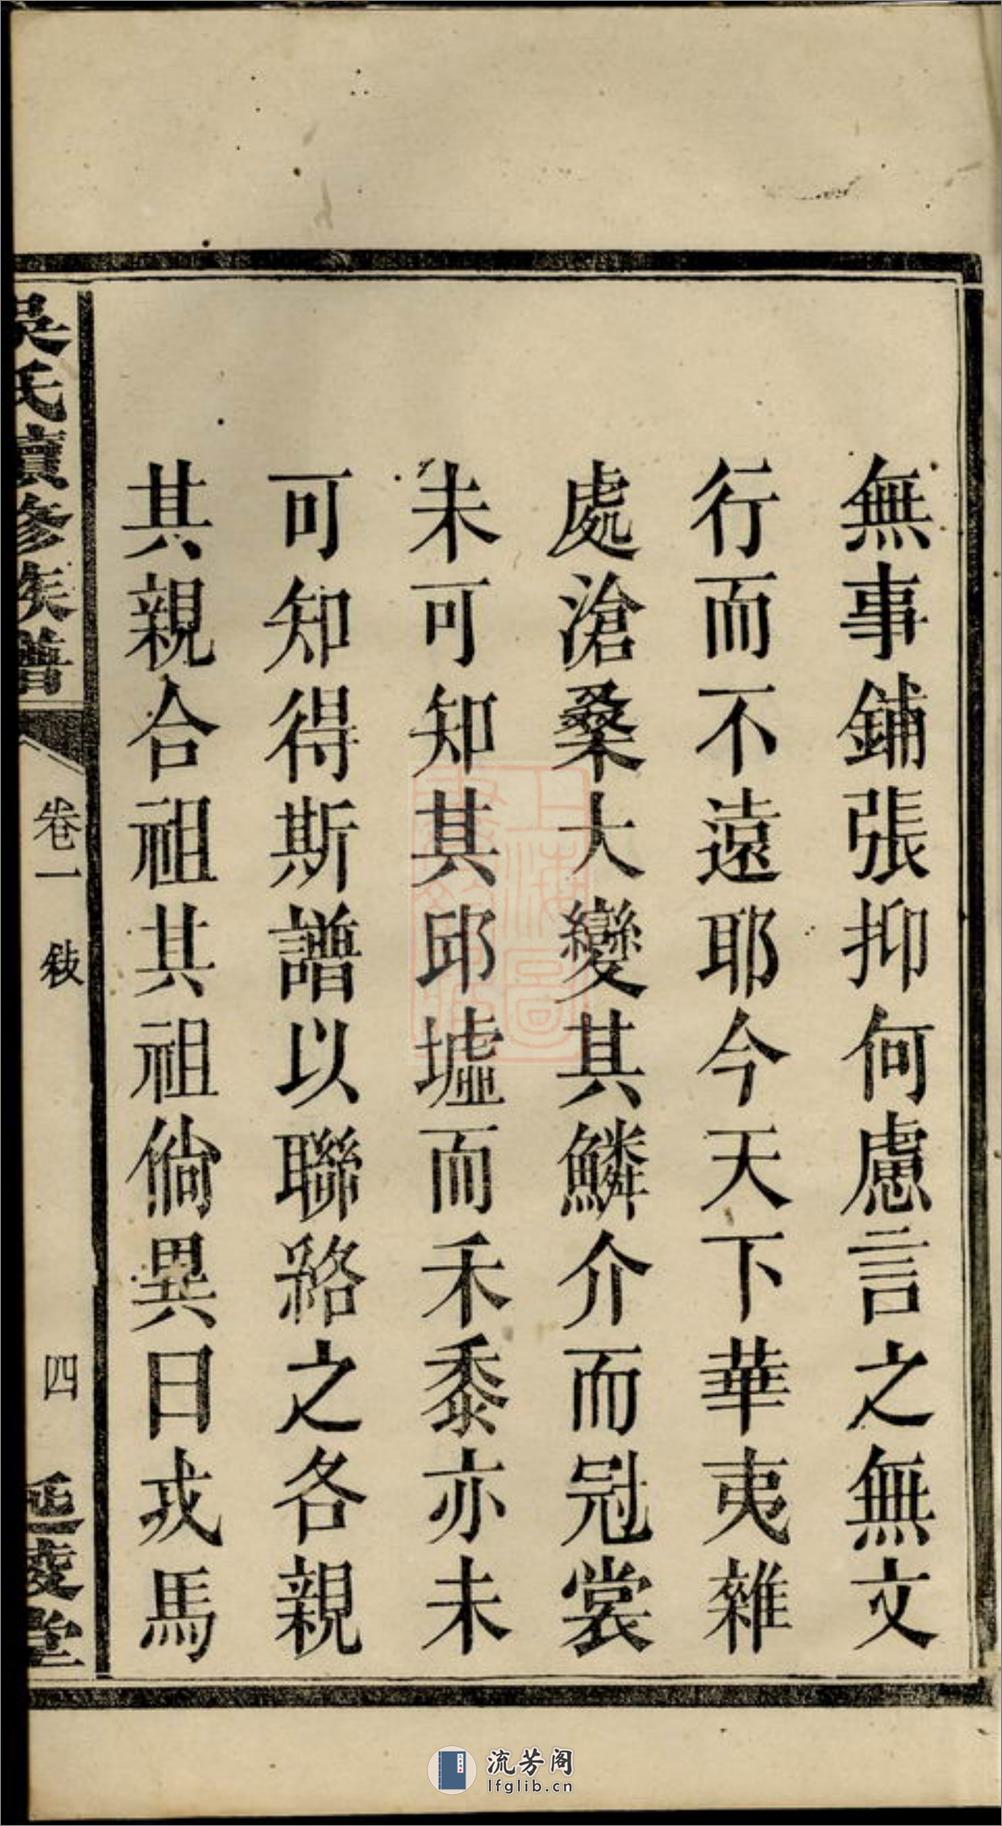 無事鋪張抑何慮言之無文
行而不遠耶今天下華夷雜
處滄桑大變其鱗介而冠裳
未可知其邱墟而禾黍亦未
可知得斯譜以聯絡之各親
其親合祖其祖倘異日戎馬
吳氏續修族譜
卷一
敍
四
延陵堂
上海圖
流芳阁
lfglib.cn